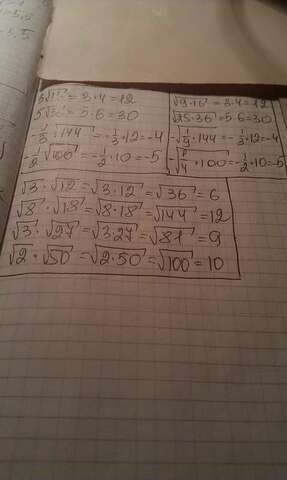 3√16 = 3·4=12
5√36 = 5·6=30
-1/3√144 = -1/3·12=-4
-1/2√100 = -1/2·10=-5
√9·16 = 3·4=12
√25·36 = 5·6=30
-√1/9·144 = -1/3·12=-4
-√1/4·100 = -1/2·10=-5
√3·√12=√3·12=√36=6
√8·√18=√8·18=√144=12
√3·√27=√3·27=√81=9
√2·√50=√2·50=√100=10